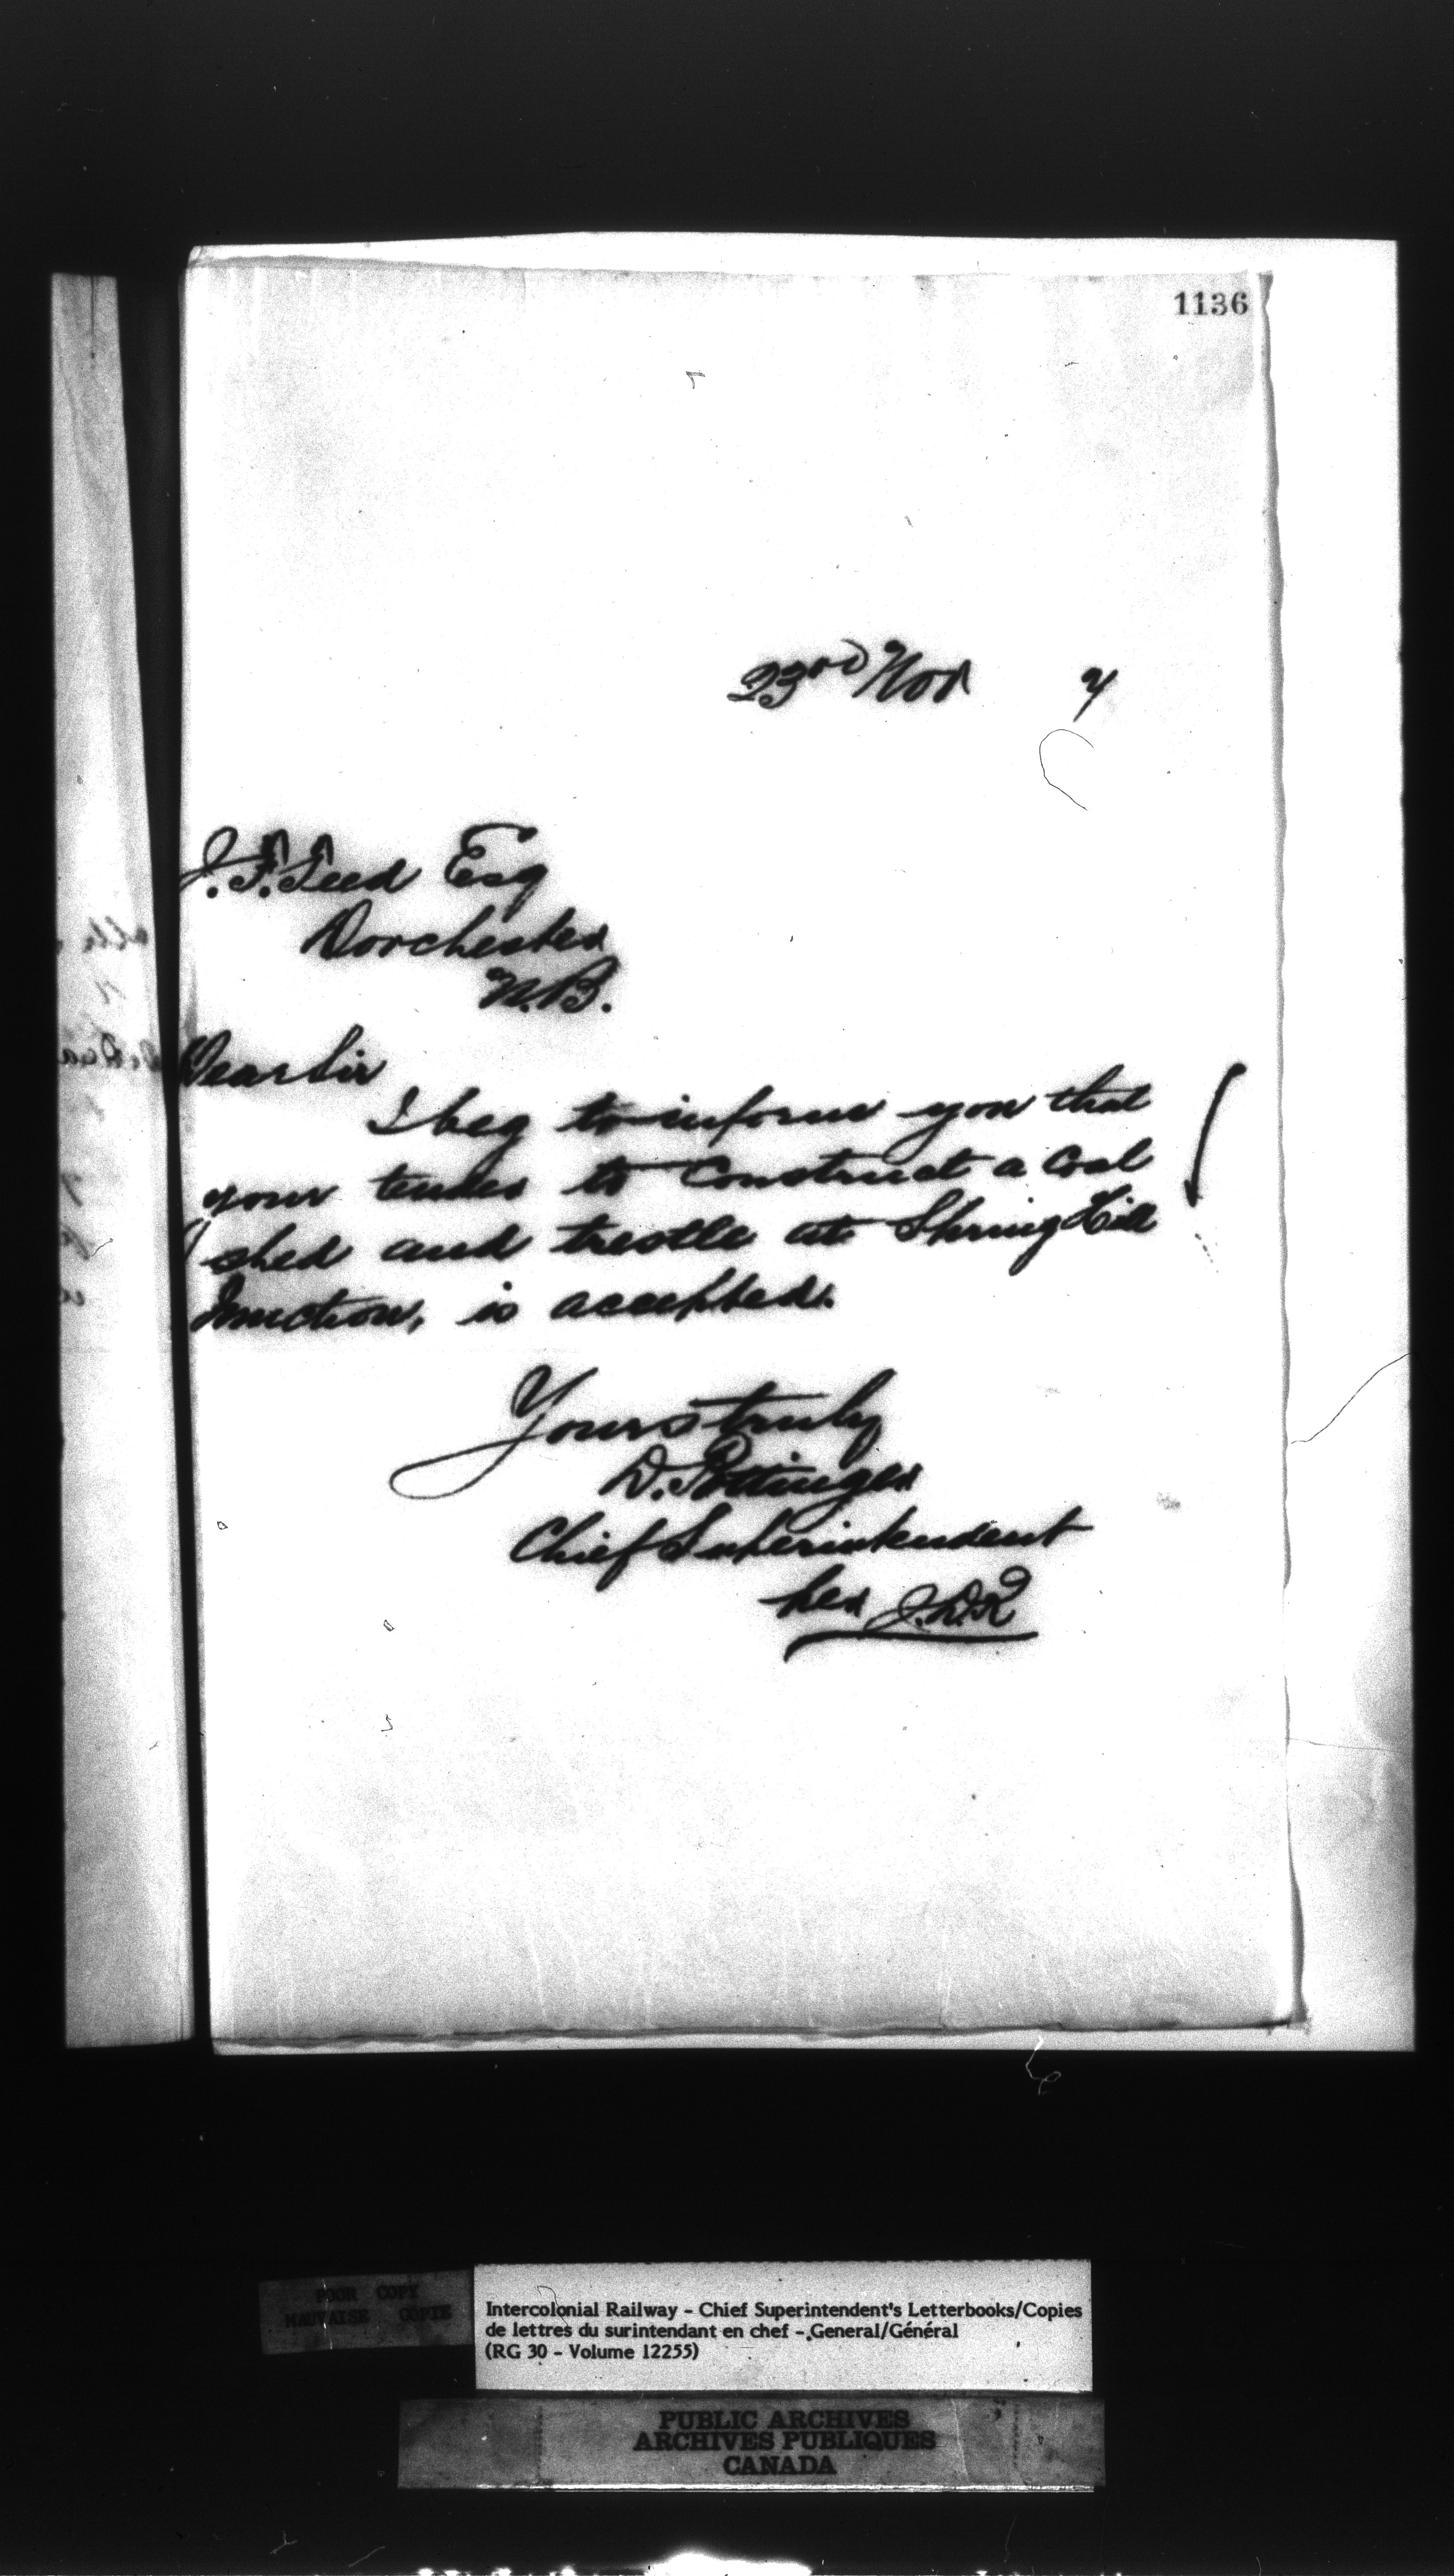 1136
23rd Nov 7
J. F. Teed Esq
Dorchester
N.B.
Dear Sir
I beg to inform you that
your tender to construct a coal
shed and trestle at Spring Hill
Junction, is accepted.
Yours truly
D. Pottinger
Chief Superintendent
per J.D.K
POOR COPY
MAUVAISE COPIE
Intercolonial Railway - Chief Superintendent's Letterbooks/Copies
de lettres du surintendant en chef - General/Général
(RG 30 - Volume 12255)
PUBLIC ARCHIVES
ARCHIVES PUBLIQUES
CANADA